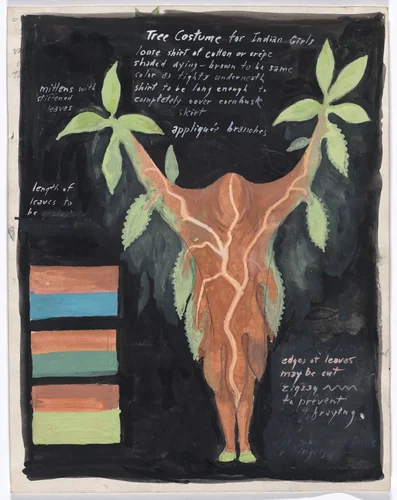 Tree Costume for Indian Girls
loose shirt of cotton or crêpe
shaded dying - brown to be same
color as tights underneath
shirt to be long enough to
completely cover cornhusk
skirt
appliqué branches
mittens with
stiffened
leaves
length of
leaves to
be
edges of leaves
may be cut
zigzag
to prevent
fraying.